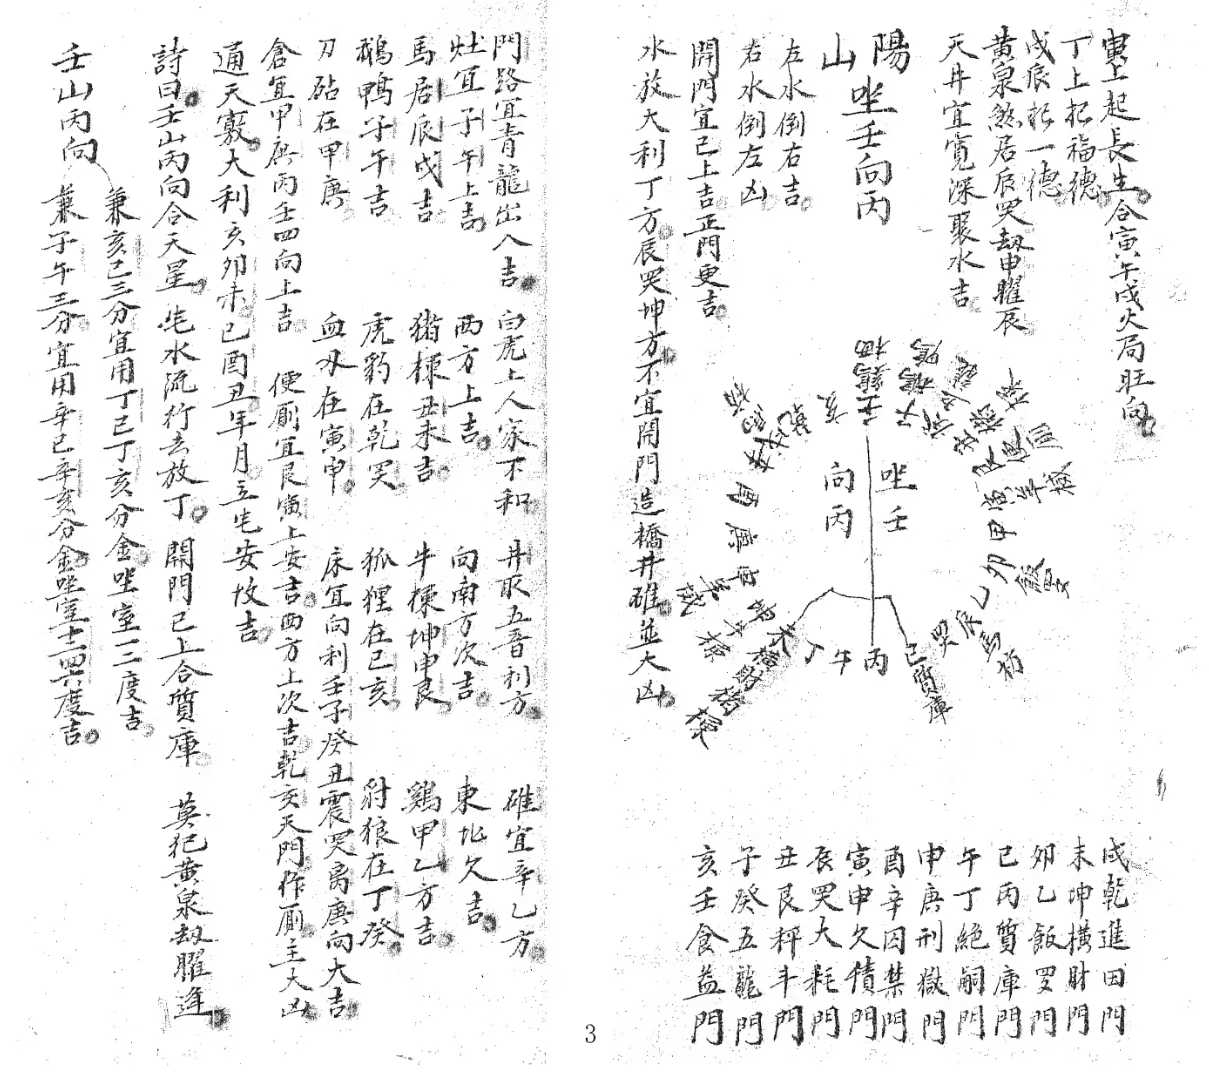 寅上起長生合寅午戌火局旺向
丁上招福德
戌辰招一德
黄泉煞居辰哭劫申曜辰
天井宜寛深聚水吉
陽山 坐壬向丙
左水倒右吉
右水倒左凶
開門宜己上吉正門更吉
水放大利丁方辰哭坤方不宜開門造橋井碓並大凶
坐壬
向丙
亥 壬 子
甲 卯 乙 辰
己 丙 午 丁
己質庫
戌乾進田門
未坤横財門
卯乙飯罗門
己丙質庫門
午丁絶嗣門
申庚刑獄門
酉辛囚禁門
寅申欠債門
辰哭大耗門
丑艮秤斗門
子癸五龍門
亥壬食益門
3
門路宜青龍出入吉 白虎上人家不和 井取五音利方 碓宜辛乙方
灶宜子午上吉 西方上吉 向南方次吉 東北欠吉
馬居辰戌吉 猪棟丑未吉 牛棟坤申艮 鷄甲乙方吉
鵝鴨子午吉 虎豹在乾哭 狐狸在己亥 豺狼在丁癸
刀砧在甲庚 血刃在寅申 床宜向利壬子癸丑震哭离庚向大吉
倉宜甲庚丙壬四向上吉 便厠宜艮寅上安吉西方上次吉乾亥天門作厠主大凶
通天竅大利亥卯未己酉丑年月立宅安坟吉
詩曰壬山丙向合天星 宅水流行去放丁 開門己上合質庫 莫犯黄泉劫曜逢
壬山丙向
兼亥己三分宜用丁己丁亥分金坐室一二度吉
兼子午三分宜用辛己辛亥分金坐室十二四六度吉